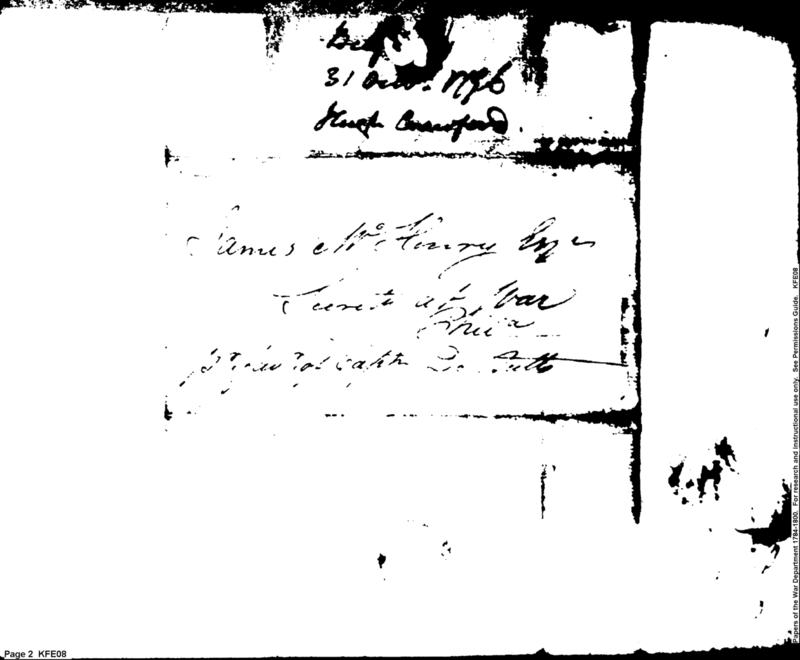 31 Octr. 1796
Hugh Crawford.
James McHenry Esqr
Secrety at War
Phila
Captn De Butts
Page 2 KFE08
Papers of the War Department 1784-1800. For research and instructional use only. See Permissions Guide. KFE08